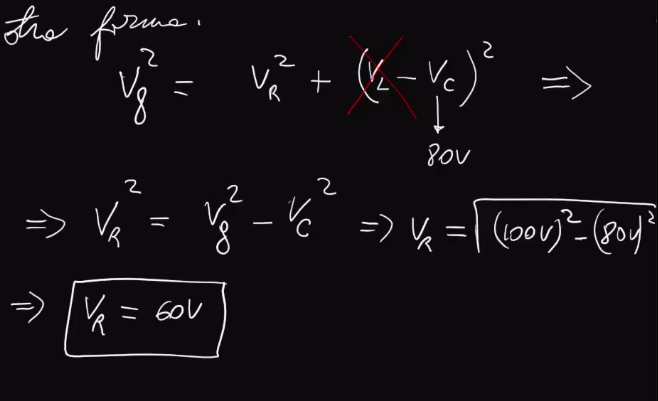 otra forma.
V_g² = V_R² + (V_L - V_C)² ⇒
80V
⇒ V_R² = V_g² - V_C² ⇒ V_R = √(100V)² - (80V)²
⇒ V_R = 60V